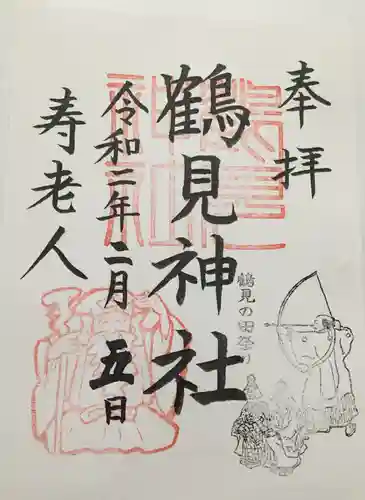 奉拝
鶴見神社
令和二年二月五日
寿老人
鶴見の田祭り